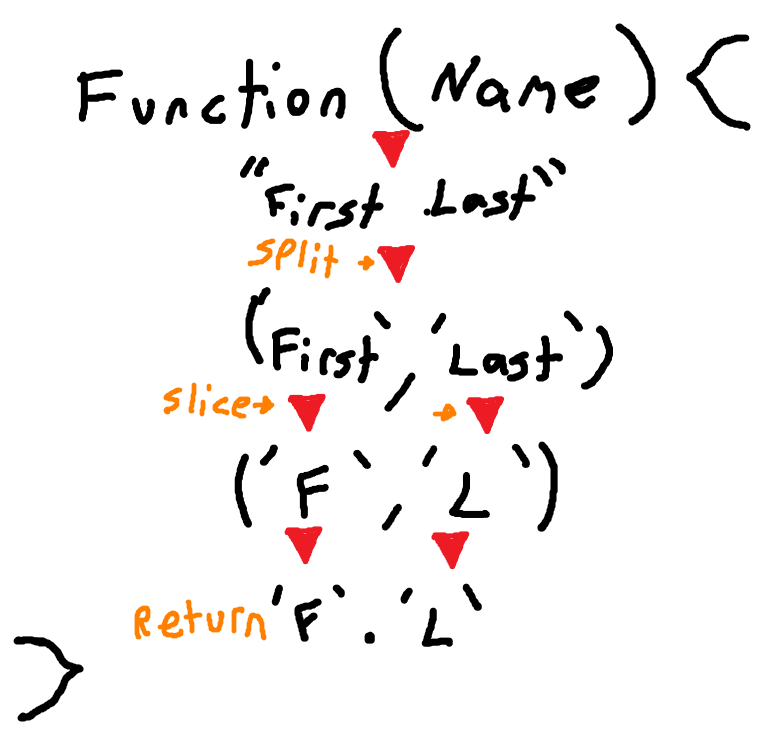 Function (Name) {
"First Last"
split →
('First', 'Last')
slice → →
('F', 'L')
Return 'F'.'L'
}